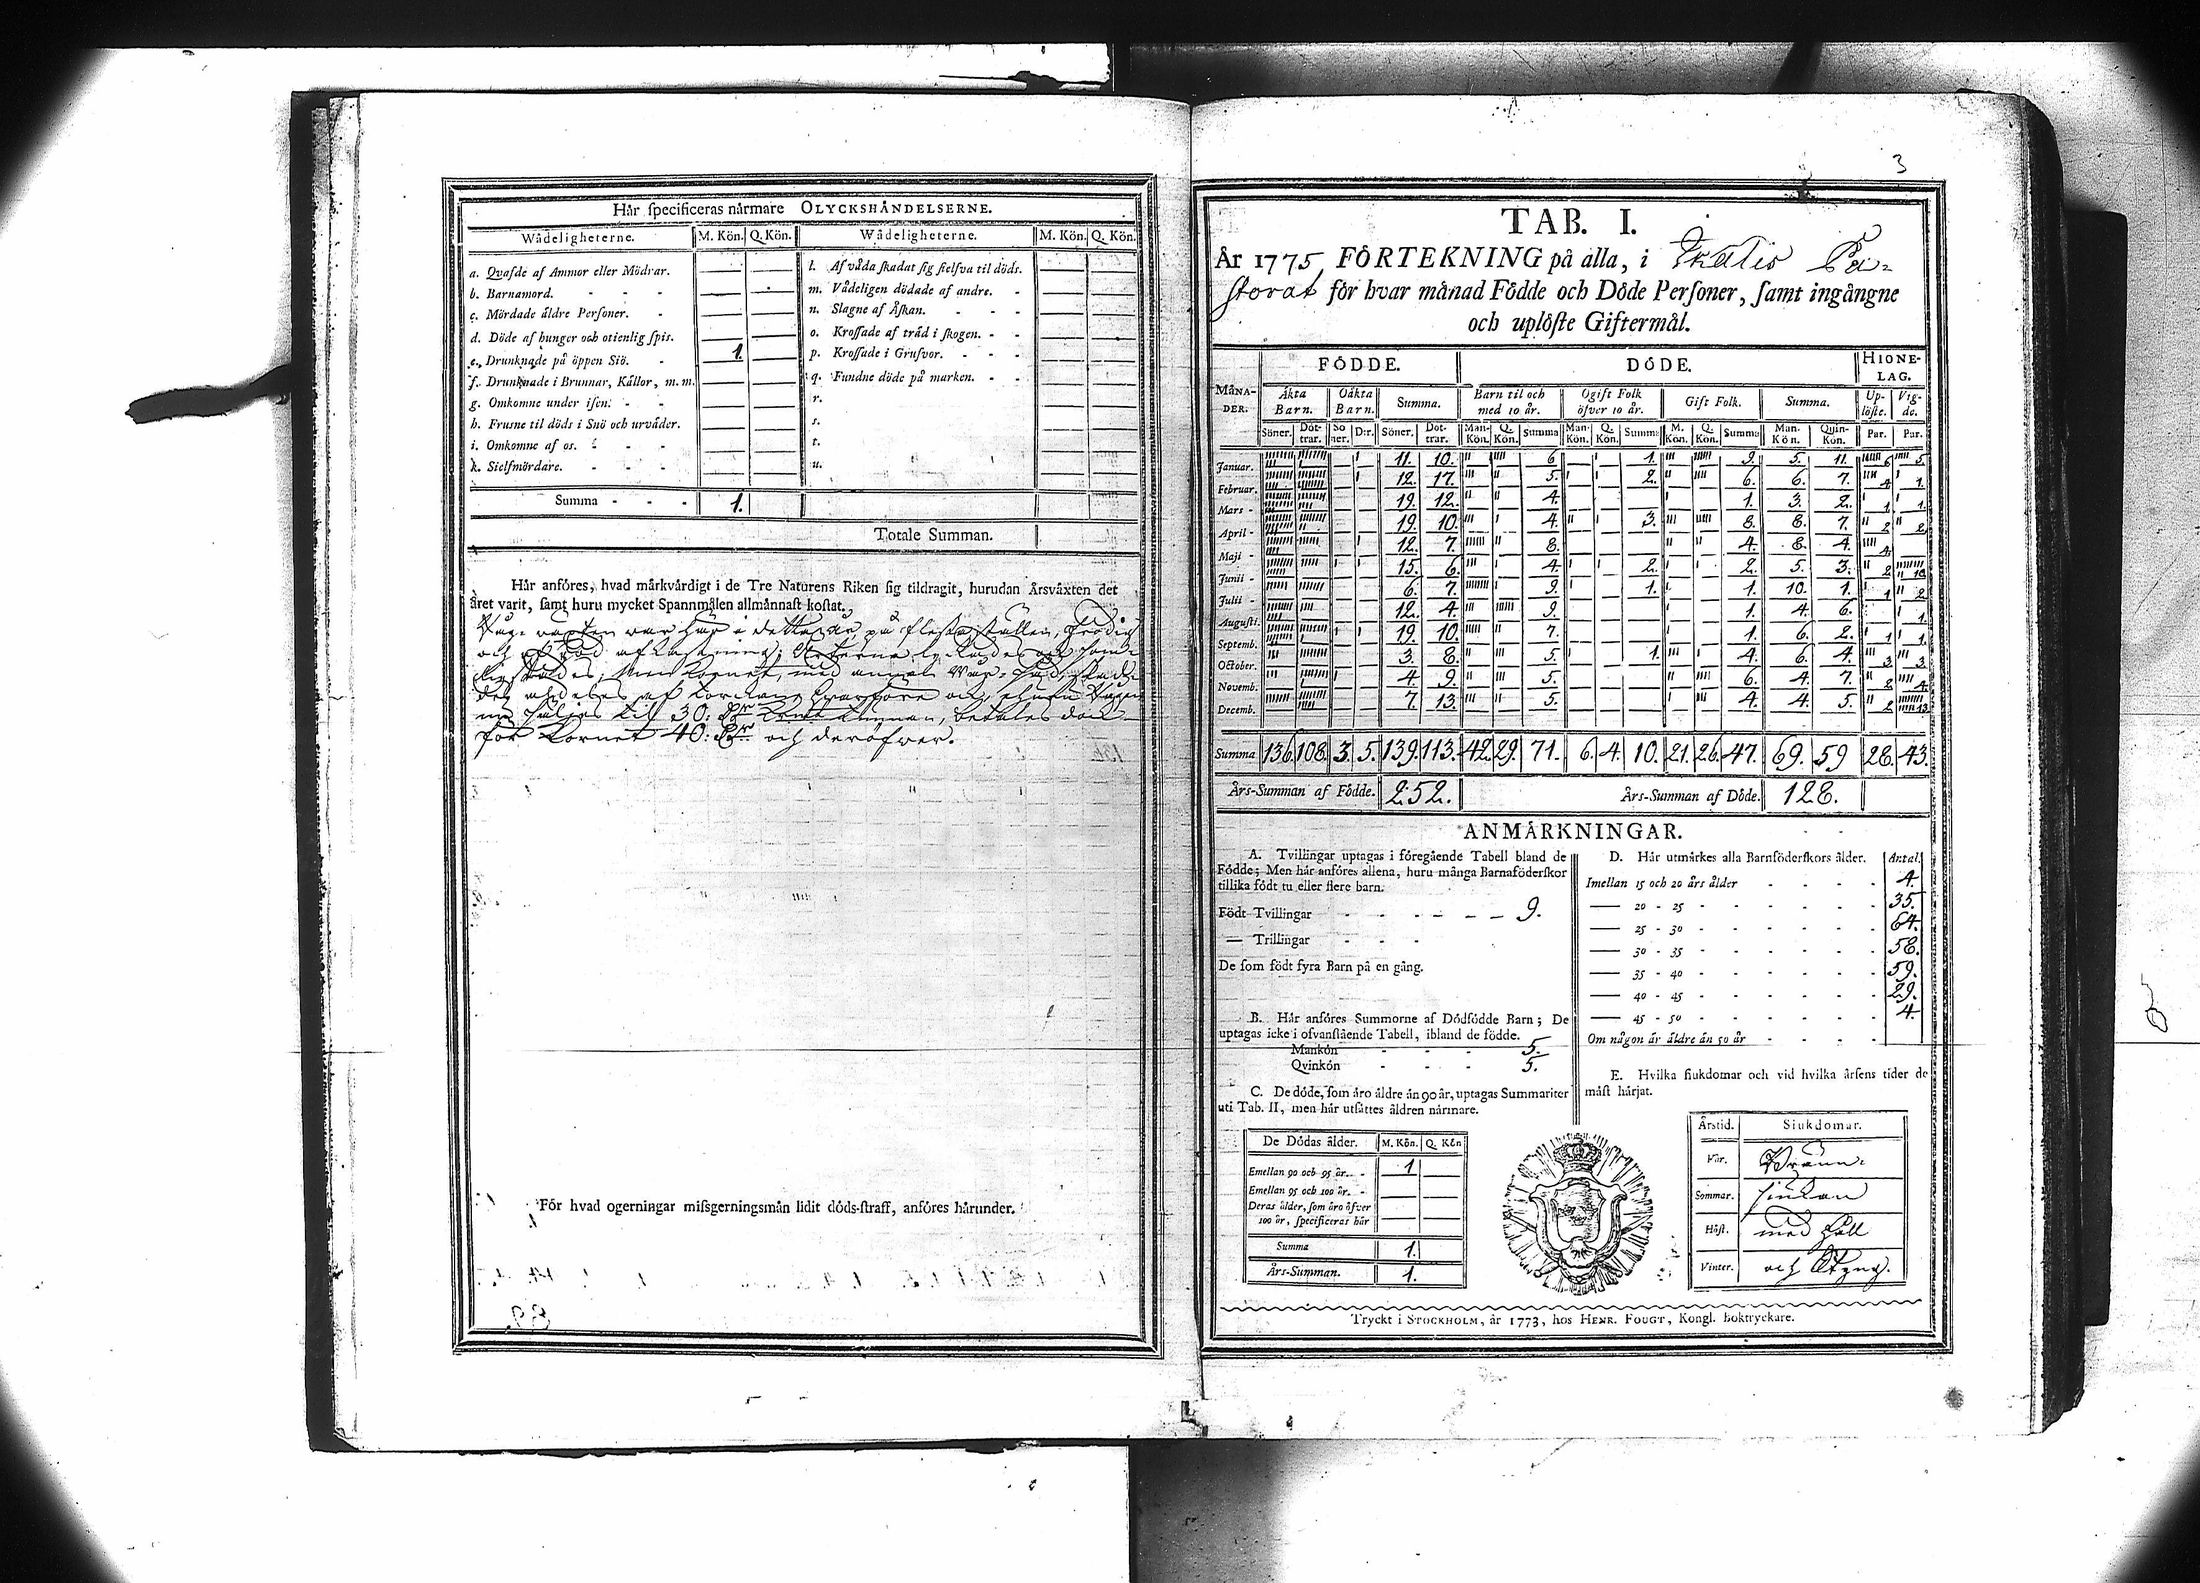 Hår specificeras nårmare OLYCKSHÅNDELSERNE.
Wådeligheterne. M. Kön. Q. Kön. Wådeligheterne. M. Kön. Q. Kön.
a. Qvafde af Ammor eller Mödrar.
b. Barnamord.
c. Mördade äldre Personer.
d. Döde af hunger och otienlig spis.
e. Drunknade på öppen Siö. 1.
f. Drunknade i Brunnar, Källor, m.m.
g. Omkomne under isen.
h. Frusne til döds i Snö och urväder.
i. Omkomne af os.
k. Sielfmördare.
l. Af våda skadat sig sielfva til döds.
m. Vådeligen dödade af andre.
n. Slagne af Åskan.
o. Krossade af träd i skogen.
p. Krossade i Grufvor.
q. Fundne döde på marken.
r.
s.
t.
u.
Summa 1.
Totale Summan.
Hår anföres, hvad mårkvårdigt i de Tre Naturens Riken sig tildragit, hurudan Årsvåxten det
året varit, samt huru mycket Spannmålen allmånnast kostat.
för Kornet 40: och deröfver.
För hvad ogerningar missgerningsmån lidit döds-straff, anföres hårunder.
3
TAB. I.
År 1775 FÖRTEKNING på alla, i Pa-
storat för hvar månad Födde och Döde Personer, samt ingångne
och uplöste Giftermål.
MÅNA-DER. FÖDDE. DÖDE. HIONE-LAG.
Äkta Barn. Oäkta Barn. Summa. Barn til och med 10 år. Ogift Folk öfver 10 år. Gift Folk. Summa. Up-löste. Vig-de.
Söner. Döt-trar. So ner. D:r. Söner. Dot-trar. Man-Kön. Q. Kön. Summa Man-Kön. Q. Kön. Summa M. Kön. Q. Kön. Summa Man-Kön. Quin-Kön. Par. Par.
Januar. 11. 10. 6. 1. 9. 5. 11. 6 5.
Februar. 12. 17. 5. 2. 6. 6. 7. 4. 1.
Mars 19. 12. 4. 1. 3. 2. 1 1.
April 19. 10. 4. 3. 8. 8. 7. 2 2.
Maji 12. 7. 8. 4. 8. 4. 4.
Junii 15. 6. 4. 2. 2. 5. 3. 2 10.
Julii 6. 7. 9. 1. 1. 10. 1. 1 2
Augusti. 12. 4. 9. 1. 4. 6. 1.
Septemb. 19. 10. 7. 1. 6. 2. 1 1.
October. 3. 8. 5. 1. 4. 6. 4. 3 3.
Novemb. 4. 9. 5. 6. 4. 7. 2 4.
Decemb. 7. 13. 5. 4. 4. 5. 2 13.
Summa 136. 108. 3. 5. 139. 113. 42. 29. 71. 6. 4. 10. 21. 26. 47. 69. 59 28. 43.
Års-Summan af Födde. 252. Års-Summan af Döde. 128.
ANMÅRKNINGAR.
A. Tvillingar uptagas i föregående Tabell bland de
Födde; Men hår anföres allena, huru många Barnaföderskor
tillika födt tu eller flere barn.
Födt Tvillingar 9.
— Trillingar
De som födt fyra Barn på en gång.
B. Hår anföres Summorne af Dödfödde Barn; De
uptagas icke i ofvanstående Tabell, ibland de födde.
Mankön 5.
Qvinkön 5.
C. De döde, som åro åldre ån 90 år, uptagas Summariter
uti Tab. II, men hår utsåttes åldren nårmare.
De Dödas ålder. M. Kön. Q. Kön
Emellan 90 och 95 år. 1
Emellan 95 och 100 år.
Deras ålder, som åro öfver
100 år, specificeras hår
Summa 1.
Års-Summan. 1.
D. Hår utmårkes alla Barnföderskors ålder. Antal.
Imellan 15 och 20 års ålder 4.
— 20 - 25 35.
— 25 - 30 64.
— 30 - 35 58.
— 35 - 40 59.
— 40 - 45 29.
— 45 - 50 4.
Om någon är äldre än 50 år
E. Hvilka siukdomar och vid hvilka årsens tider de
måst hårjat.
Årstid. Siukdomar.
Vår. Brånn-
Sommar. siukan
Höst. med Håll
Vinter. och Styng.
Tryckt i STOCKHOLM, år 1773, hos HENR. FOUGT, Kongl. Boktryckare.